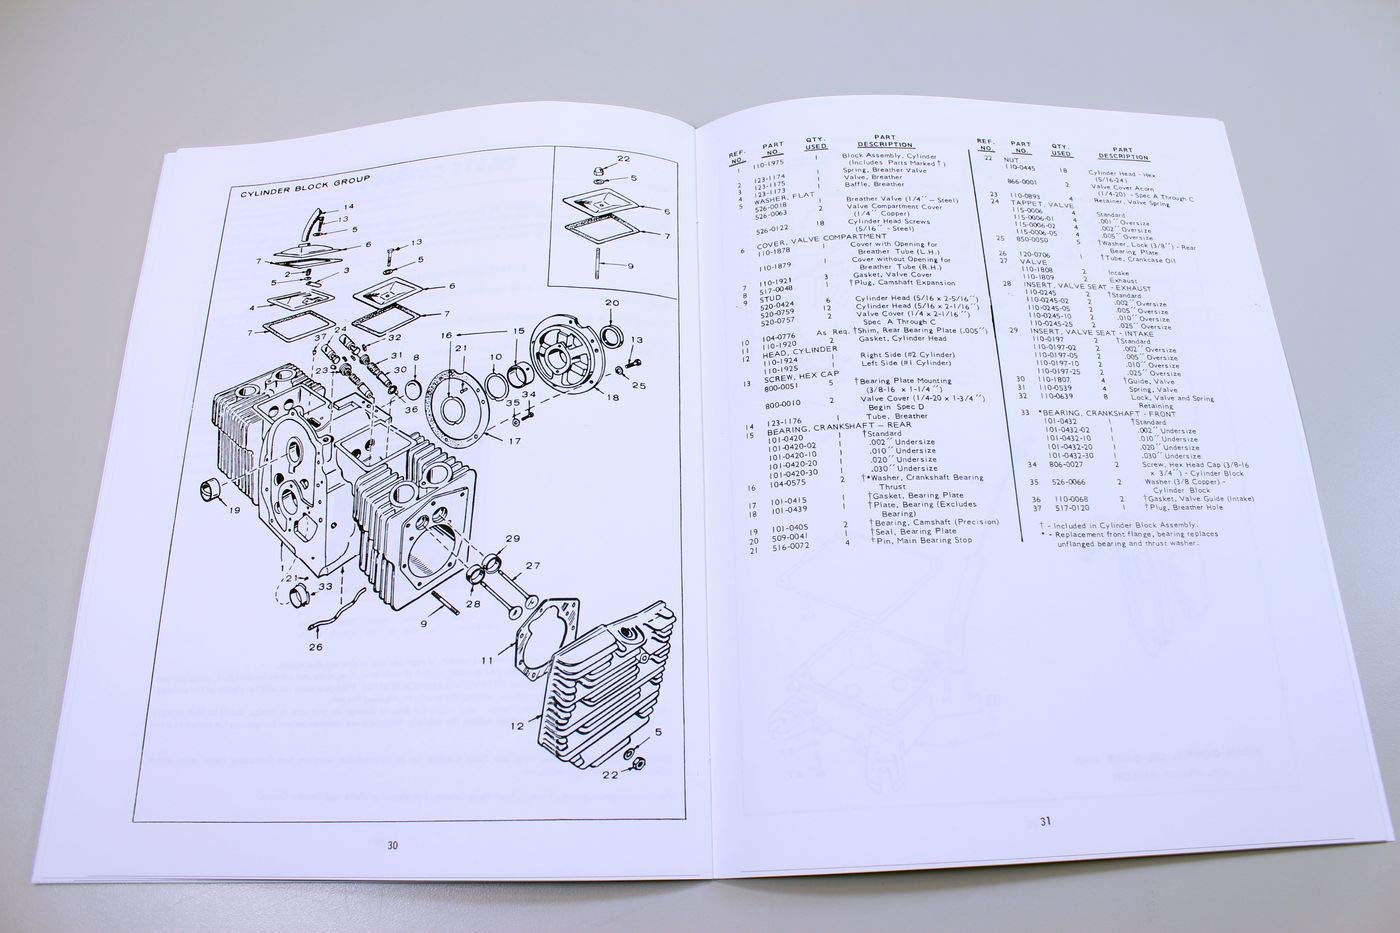 CYLINDER BLOCK GROUP
22
5
6
7
9
14
13
5
6
7
2
3
5
4
7
13
5
6
7
24
37
32
31
30
23
8
36
16
15
21
10
35
34
17
20
13
25
18
19
1
21
33
26
9
29
27
28
11
12
5
22
30
REF. PART QTY. PART
NO. NO. USED DESCRIPTION
1 110-1975 1 Block Assembly, Cylinder
(Includes Parts Marked †)
2 123-1174 1 Spring, Breather Valve
3 123-1175 1 Valve, Breather
4 123-1173 1 Baffle, Breather
5 WASHER, FLAT
526-0018 1 Breather Valve (1/4" - Steel)
526-0063 2 Valve Compartment Cover
(1/4" Copper)
526-0122 18 Cylinder Head Screws
(5/16" - Steel)
6 COVER, VALVE COMPARTMENT
110-1878 1 Cover with Opening for
Breather Tube (L.H.)
110-1879 1 Cover without Opening for
Breather Tube (R.H.)
7 110-1921 3 Gasket, Valve Cover
8 517-0048 1 †Plug, Camshaft Expansion
9 STUD
520-0424 6 Cylinder Head (5/16 x 2-5/16")
520-0759 12 Cylinder Head (5/16 x 2-1/16")
520-0757 2 Valve Cover (1/4 x 2-1/16")
Spec A Through C
10 104-0776 As Req. †Shim, Rear Bearing Plate (.005")
11 110-1920 2 Gasket, Cylinder Head
12 HEAD, CYLINDER
110-1924 1 Right Side (#2 Cylinder)
110-1925 1 Left Side (#1 Cylinder)
13 SCREW, HEX CAP
800-0051 5 †Bearing Plate Mounting
(3/8-16 x 1-1/4")
800-0010 2 Valve Cover (1/4-20 x 1-3/4")
Begin Spec D
14 123-1176 1 Tube, Breather
15 BEARING, CRANKSHAFT - REAR
101-0420 1 †Standard
101-0420-02 1 .002" Undersize
101-0420-10 1 .010" Undersize
101-0420-20 1 .020" Undersize
101-0420-30 1 .030" Undersize
16 104-0575 2 †*Washer, Crankshaft Bearing
Thrust
17 101-0415 1 †Gasket, Bearing Plate
18 101-0439 1 †Plate, Bearing (Excludes
Bearing)
19 101-0405 2 †Bearing, Camshaft (Precision)
20 509-0041 1 †Seal, Bearing Plate
21 516-0072 4 †Pin, Main Bearing Stop
REF. PART QTY. PART
NO. NO. USED DESCRIPTION
22 NUT
110-0445 18 Cylinder Head - Hex
(5/16-24)
866-0001 2 Valve Cover Acorn
(1/4-20) - Spec A Through C
23 110-0893 4 Retainer, Valve Spring
24 TAPPET, VALVE
115-0006 4 Standard
115-0006-01 4 .001" Oversize
115-0006-02 4 .002" Oversize
115-0006-05 4 .005" Oversize
25 850-0050 5 †Washer, Lock (3/8") - Rear
Bearing Plate
26 120-0706 1 †Tube, Crankcase Oil
27 VALVE
110-1808 2 Intake
110-1809 2 Exhaust
28 INSERT, VALVE SEAT - EXHAUST
110-0245 2 †Standard
110-0245-02 2 .002" Oversize
110-0245-05 2 .005" Oversize
110-0245-10 2 .010" Oversize
110-0245-25 2 .025" Oversize
29 INSERT, VALVE SEAT - INTAKE
110-0197 2 †Standard
110-0197-02 2 .002" Oversize
110-0197-05 2 .005" Oversize
110-0197-10 2 .010" Oversize
110-0197-25 2 .025" Oversize
30 110-1807 4 †Guide, Valve
31 110-0539 4 Spring, Valve
32 110-0639 8 Lock, Valve and Spring
Retaining
33 *BEARING, CRANKSHAFT - FRONT
101-0432 1 †Standard
101-0432-02 1 .002" Undersize
101-0432-10 1 .010" Undersize
101-0432-20 1 .020" Undersize
101-0432-30 1 .030" Undersize
34 806-0027 2 Screw, Hex Head Cap (3/8-16
x 3/4") - Cylinder Block
35 526-0066 2 Washer (3/8 Copper) -
Cylinder Block
36 110-0068 2 †Gasket, Valve Guide (Intake)
37 517-0120 1 †Plug, Breather Hole
† - Included in Cylinder Block Assembly.
* - Replacement front flange, bearing replaces
unflanged bearing and thrust washer.
31